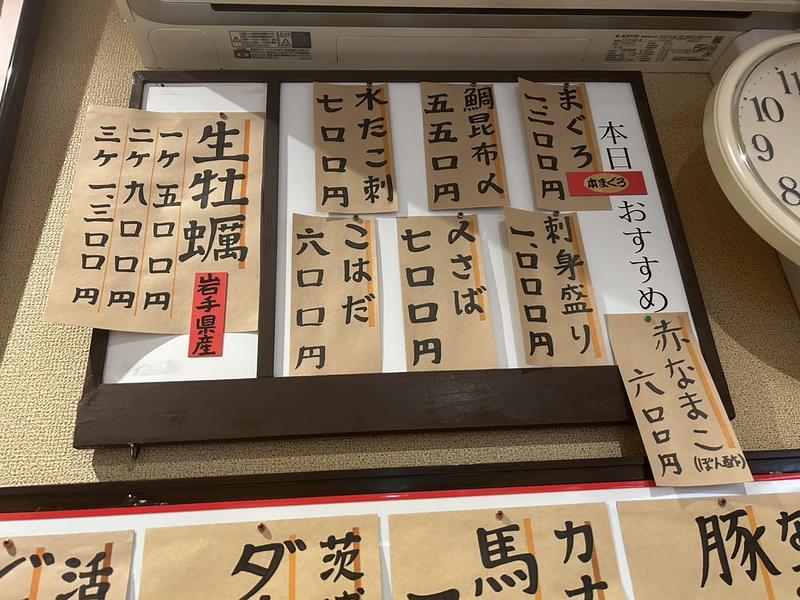 本日おすすめ
本まぐろ
まぐろ
一、三〇〇円
鯛昆布〆
五五〇円
水たこ刺
七〇〇円
刺身盛り
一、〇〇〇円
〆さば
七〇〇円
こはだ
六〇〇円
生牡蠣
岩手県産
一ケ 五〇〇円
二ケ 九〇〇円
三ケ 一、三〇〇円
赤なまこ
(ぽん酢)
六〇〇円
豚
カナ
馬
茨城
ダ
活
10
9
8
11